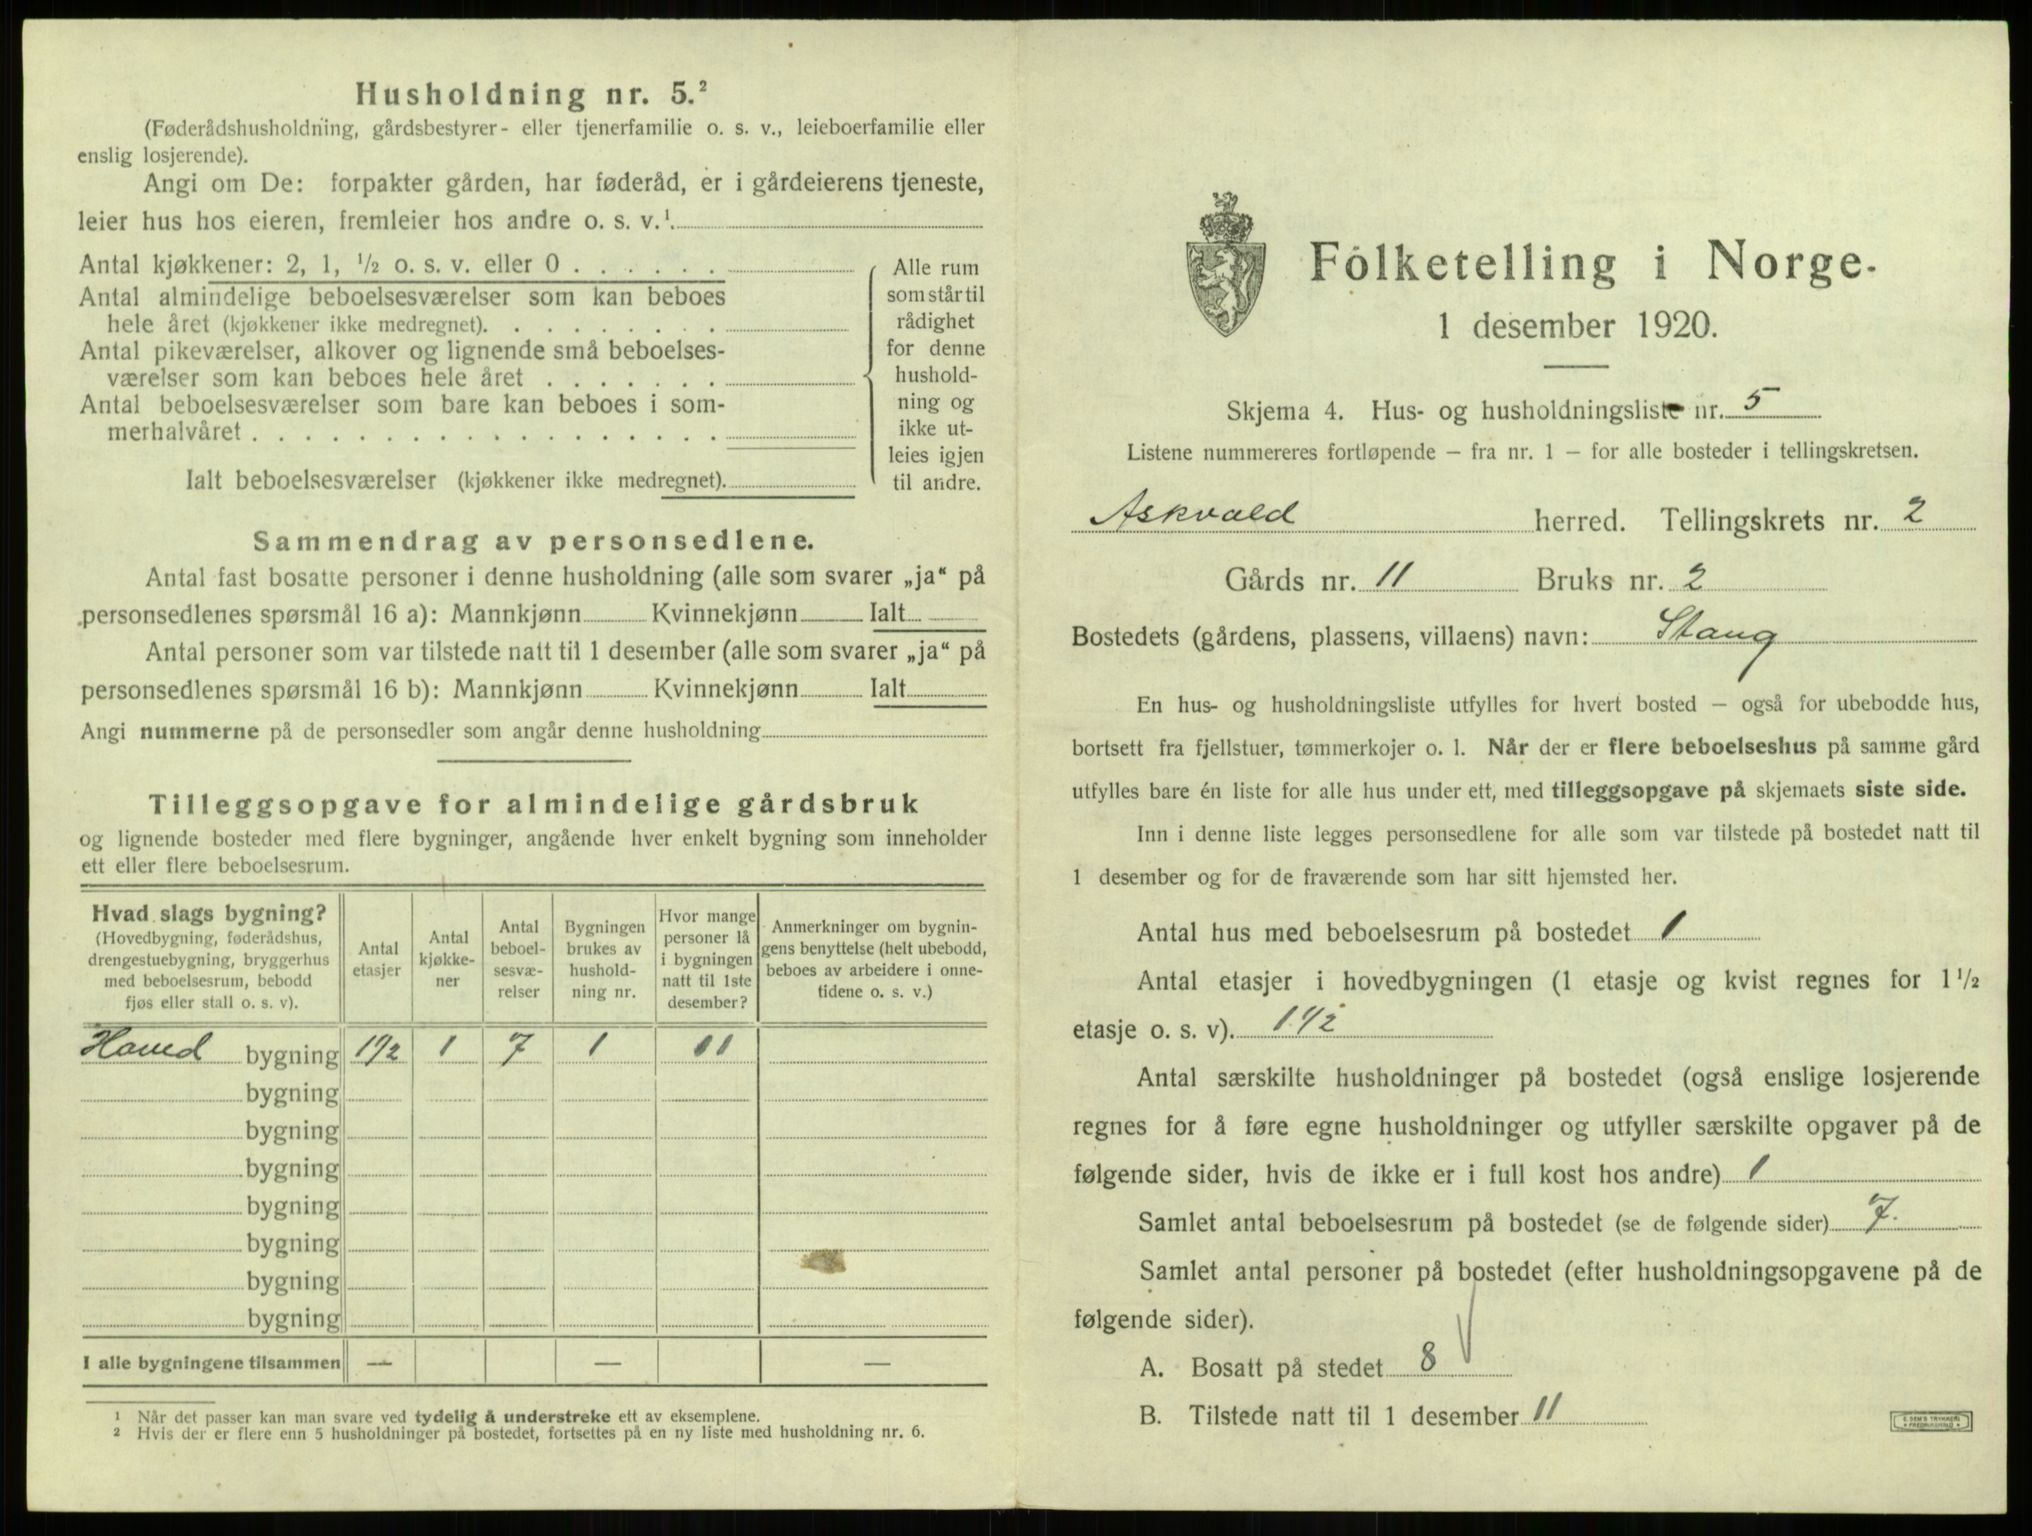 Husholdning nr. 5.²
(Føderådshusholdning, gårdsbestyrer- eller tjenerfamilie o. s. v., leieboerfamilie eller
enslig losjerende).
Angi om De: forpakter gården, har føderåd, er i gårdeierens tjeneste,
leier hus hos eieren, fremleier hos andre o. s. v.¹
Antal kjøkkener: 2, 1, ½ o. s. v. eller 0 . . . . . .
Antal almindelige beboelsesværelser som kan beboes
hele året (kjøkkener ikke medregnet). . . . . . . . .
Antal pikeværelser, alkover og lignende små beboelses-
værelser som kan beboes hele året . . . . . . .
Antal beboelsesværelser som bare kan beboes i som-
merhalvåret . . . . . . . . . . . . . . . . . .
Alle rum
som står til
rådighet
for denne
hushold-
ning og
ikke ut-
leies igjen
til andre.
Ialt beboelsesværelser (kjøkkener ikke medregnet).
Sammendrag av personsedlene.
Antal fast bosatte personer i denne husholdning (alle som svarer „ja“ på
personsedlenes spørsmål 16 a): Mannkjønn Kvinnekjønn Ialt
Antal personer som var tilstede natt til 1 desember (alle som svarer „ja“ på
personsedlenes spørsmål 16 b): Mannkjønn Kvinnekjønn Ialt
Angi nummerne på de personsedler som angår denne husholdning
Tilleggsopgave for almindelige gårdsbruk
og lignende bosteder med flere bygninger, angående hver enkelt bygning som inneholder
ett eller flere beboelsesrum.
Hvad slags bygning?
(Hovedbygning, føderådshus,
drengestuebygning, bryggerhus
med beboelsesrum, bebodd
fjøs eller stall o. s. v).
Antal
etasjer
Antal
kjøkke-
ner
Antal
beboel-
sesvæ-
relser
Bygningen
brukes av
hushold-
ning nr.
Hvor mange
personer lå
i bygningen
natt til 1ste
desember?
Anmerkninger om bygnin-
gens benyttelse (helt ubebodd,
beboes av arbeidere i onne-
tidene o. s. v.)
Hoved bygning 1½ 1 7 1 11
bygning
bygning
bygning
bygning
bygning
bygning
bygning
I alle bygningene tilsammen — — —
¹ Når det passer kan man svare ved tydelig å understreke ett av eksemplene.
² Hvis der er flere enn 5 husholdninger på bostedet, fortsettes på en ny liste med husholdning nr. 6.
Folketelling i Norge.
1 desember 1920.
Skjema 4. Hus- og husholdningsliste nr. 5
Listene nummereres fortløpende — fra nr. 1 — for alle bosteder i tellingskretsen.
Askvold herred. Tellingskrets nr. 2
Gårds nr. 11 Bruks nr. 2
Bostedets (gårdens, plassens, villaens) navn: Stang
En hus- og husholdningsliste utfylles for hvert bosted — også for ubebodde hus,
bortsett fra fjellstuer, tømmerkojer o. l. Når der er flere beboelseshus på samme gård
utfylles bare én liste for alle hus under ett, med tilleggsopgave på skjemaets siste side.
Inn i denne liste legges personsedlene for alle som var tilstede på bostedet natt til
1 desember og for de fraværende som har sitt hjemsted her.
Antal hus med beboelsesrum på bostedet 1
Antal etasjer i hovedbygningen (1 etasje og kvist regnes for 1½
etasje o. s. v). 1½
Antal særskilte husholdninger på bostedet (også enslige losjerende
regnes for å føre egne husholdninger og utfyller særskilte opgaver på de
følgende sider, hvis de ikke er i full kost hos andre) 1
Samlet antal beboelsesrum på bostedet (se de følgende sider) 7.
Samlet antal personer på bostedet (efter husholdningsopgavene på de
følgende sider).
A. Bosatt på stedet 8
B. Tilstede natt til 1 desember 11
E. SEM'S TRYKKERI
FREDRIKSHALD